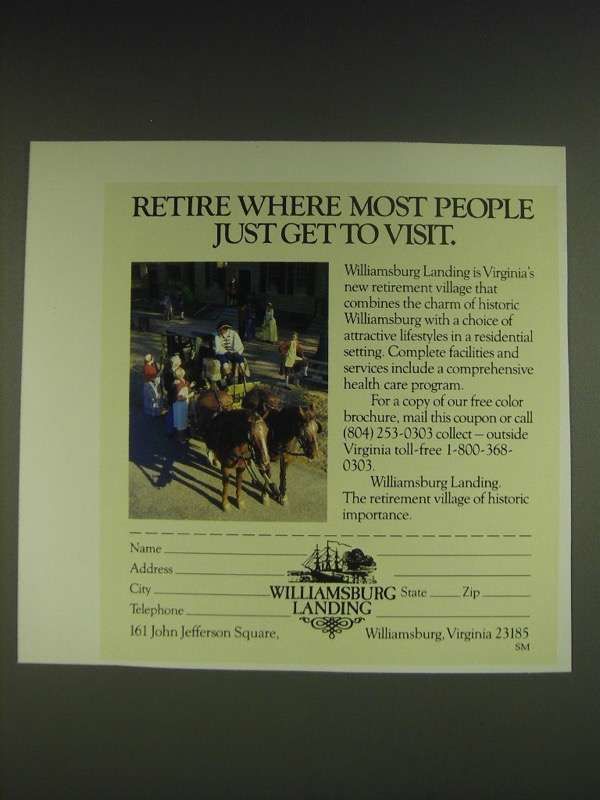 RETIRE WHERE MOST PEOPLE
JUST GET TO VISIT.
Williamsburg Landing is Virginia's
new retirement village that
combines the charm of historic
Williamsburg with a choice of
attractive lifestyles in a residential
setting. Complete facilities and
services include a comprehensive
health care program.
For a copy of our free color
brochure, mail this coupon or call
(804) 253-0303 collect — outside
Virginia toll-free 1-800-368-
0303.
Williamsburg Landing.
The retirement village of historic
importance.
Name
Address
City
State Zip
Telephone
WILLIAMSBURG
LANDING
161 John Jefferson Square, Williamsburg, Virginia 23185
SM